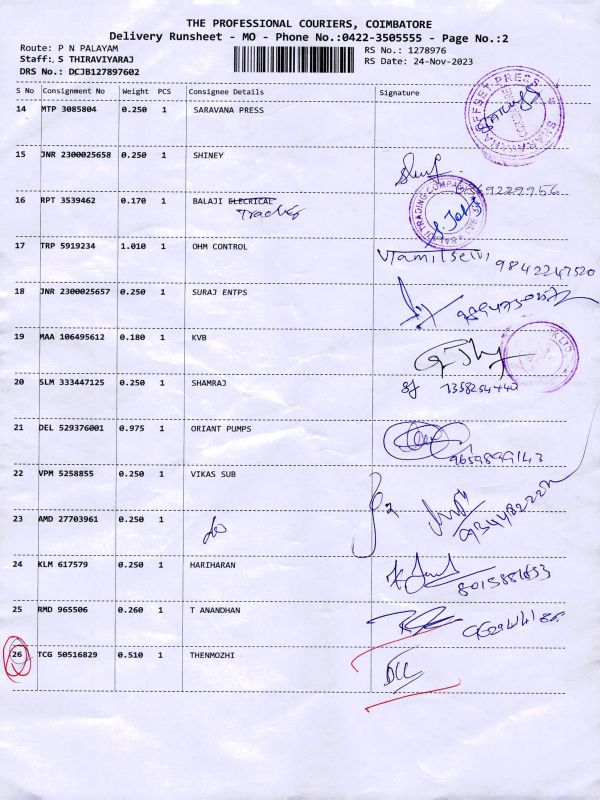 THE PROFESSIONAL COURIERS, COIMBATORE
Delivery Runsheet - MO - Phone No.:0422-3505555 - Page No.:2
Route: P N PALAYAM
RS No.: 1278976
Staff: S THIRAVIYARAJ
RS Date: 24-Nov-2023
DRS No.: DCJB127897602
S No Consignment No Weight PCS Consignee Details Signature
14 MTP 3085804 0.250 1 SARAVANA PRESS
15 JNR 2300025658 0.250 1 SHINEY
16 RPT 3539462 0.170 1 BALAJI ELECRICAL
17 TRP 5919234 1.010 1 OHM CONTROL
Vtamilselvi 9842247520
18 JNR 2300025657 0.250 1 SURAJ ENTPS
19 MAA 106495612 0.180 1 KVB
20 SLM 333447125 0.250 1 SHAMRAJ
7358254440
21 DEL 529376001 0.975 1 ORIANT PUMPS
9659899143
22 VPM 5258855 0.250 1 VIKAS SUB
23 AMD 27703961 0.250 1 do
24 KLM 617579 0.250 1 HARIHARAN
25 RMD 965506 0.260 1 T ANANDHAN
26 TCG 50516829 0.510 1 THENMOZHI